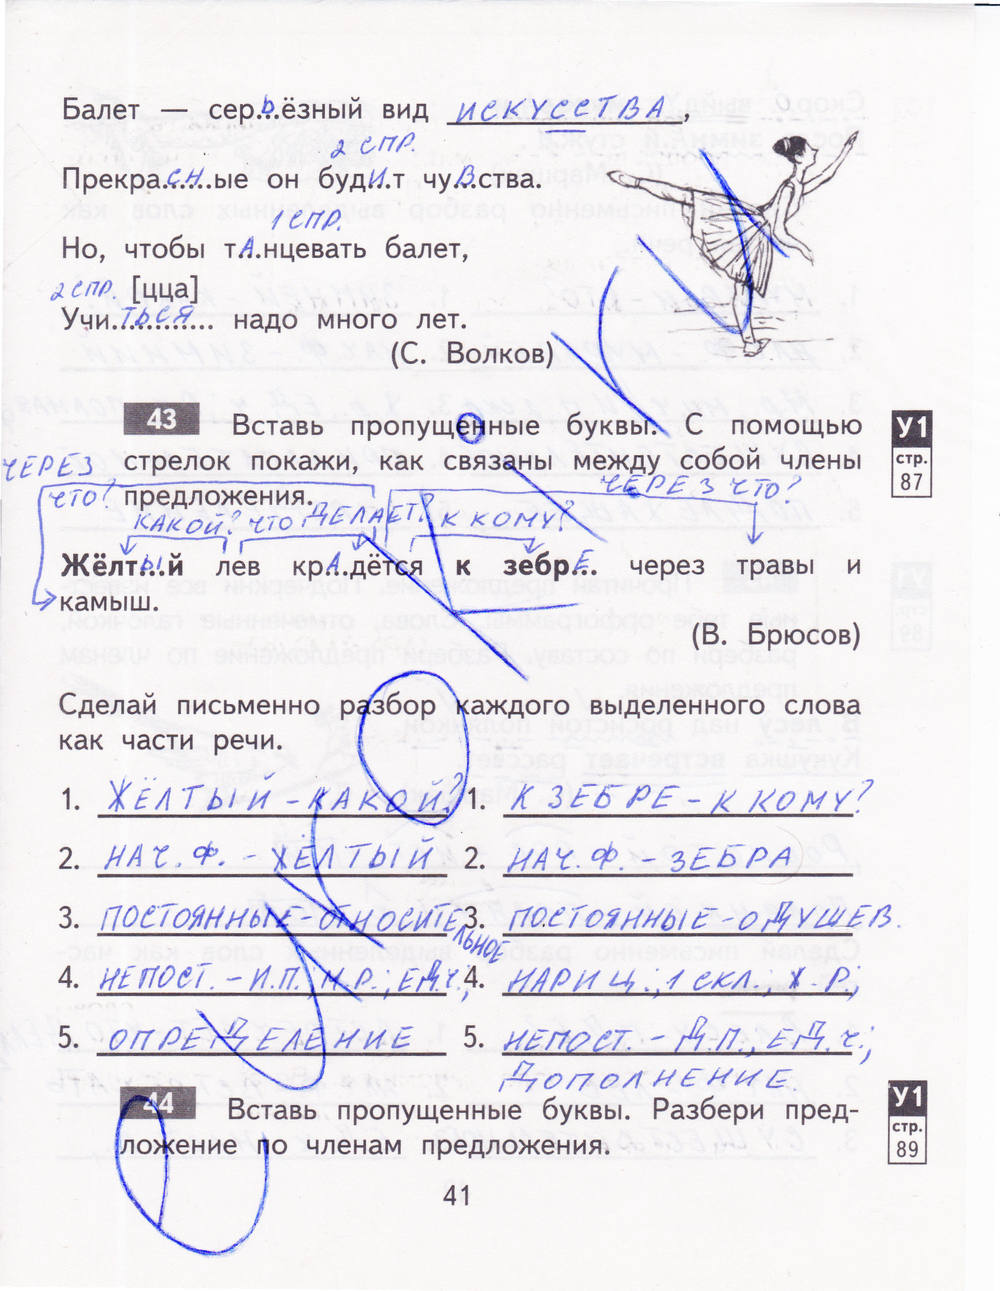 Балет — серЬёзный вид ИСКУССТВА,
2 СПР.
ПрекраСНые он будИт чуВства.
1 СПР.
Но, чтобы тАнцевать балет,
2 СПР. [цца]
УчиТЬСЯ надо много лет.
(С. Волков)
43 Вставь пропущенные буквы. С помощью
У1
стр.
87
стрелок покажи, как связаны между собой члены
предложения.
ЧЕРЕЗ ЧТО? ЧЕРЕЗ ЧТО?
КАКОЙ? ЧТО ДЕЛАЕТ? К КОМУ?
ЖёлтЫй лев крАдётся к зебрЕ через травы и
камыш.
(В. Брюсов)
Сделай письменно разбор каждого выделенного слова
как части речи.
1. ЖЁЛТЫЙ – КАКОЙ? 1. К ЗЕБРЕ – К КОМУ?
2. НАЧ. Ф. – ЖЁЛТЫЙ 2. НАЧ. Ф. – ЗЕБРА
3. ПОСТОЯННЫЕ ОТНОСИТЕЛЬНОЕ 3. ПОСТОЯННЫЕ – ОДУШЕВ.
4. НЕПОСТ. – И.П.; М.Р.; ЕД.Ч.; 4. НАРИЦ.; 1 СКЛ., Ж.Р.;
5. ОПРЕДЕЛЕНИЕ 5. НЕПОСТ. – Д.П., ЕД.Ч.;
ДОПОЛНЕНИЕ
44 Вставь пропущенные буквы. Разбери пред-
ложение по членам предложения.
У1
стр.
89
41